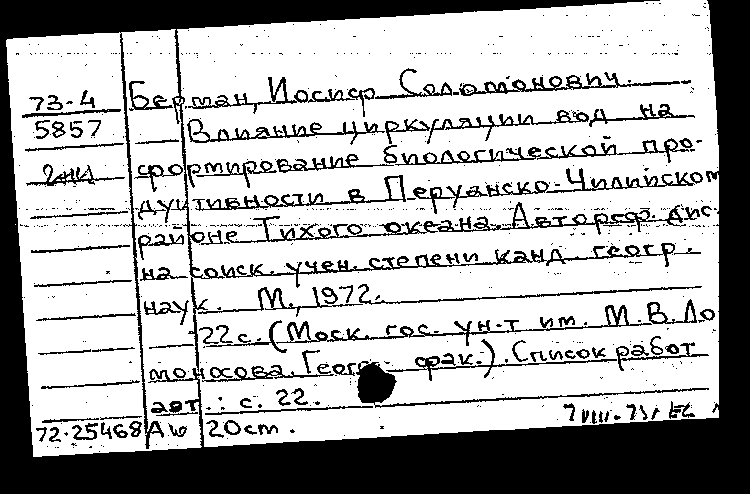 73-4 Берман, Иосиф Соломонович.
5857 Влияние циркуляции вод на
формирование биологической про-
дуктивности в Перуанско-Чилийском
районе Тихого океана. Автореф. дис.
на соиск. учен. степени канд. геогр.
наук. М., 1972.
22с. (Моск. гос. ун-т им. М.В. Ло
моносова. Геогр. фак.). Список работ
авт.: с. 22.
72-25468 20см.